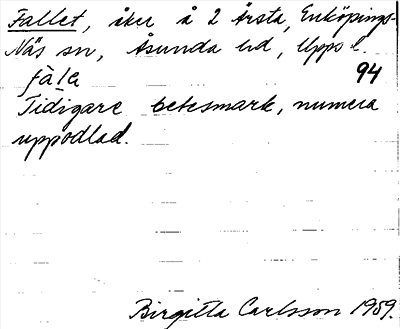 Fallet, åker å 2 Årsta, Enköpings-
Näs sn, Åsunda hd, Upps l.
fàlα 94
Tidigare betesmark, numera
uppodlad.
Birgitta Carlsson 1959.